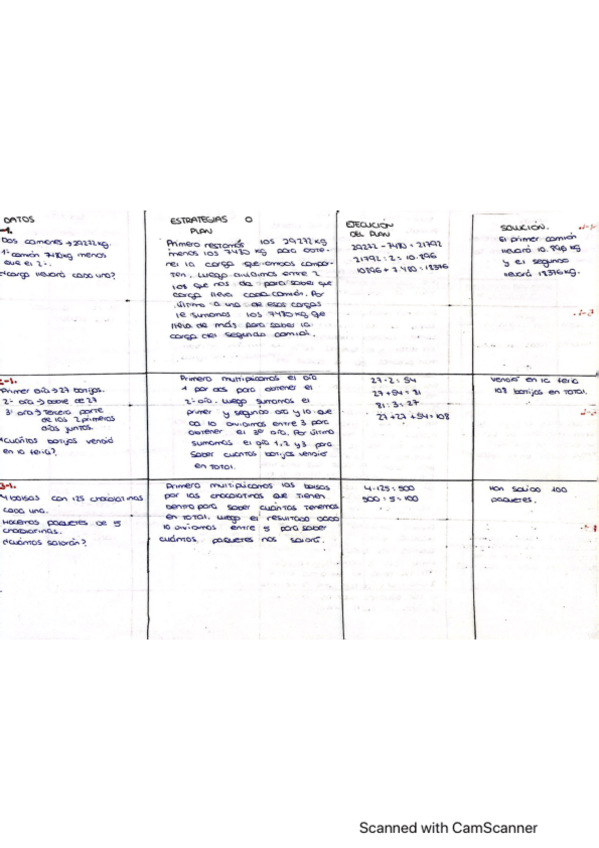 DATOS
-1.
Dos camiones → 29272 kg.
1º camión 7480 kg menos
que el 2º.
¿carga llevará cada uno?
ESTRATEGIAS O
PLAN
Primero restamos los 29272 kg
menos los 7480 kg para obte-
ner la carga que ambos compar-
ten. Luego dividimos entre 2
los que nos da para saber que
carga lleva cada camión. Por
último a una de esas cargas
le sumamos los 7480 kg que
lleva de más para saber la
carga del segundo camión.
EJECUCIÓN
DEL PLAN
29272 - 7480 = 21792
21792 : 2 = 10.896
10896 + 7.480 = 18376
SOLUCIÓN.
El primer camión
llevará 10.896 kg
y el segundo
llevará 18376 kg.
2-1.
Primer día → 27 botijos.
2º día → doble de 27
3º día → tercera parte
de los 2 primeros
días juntos.
¿cuántos botijos vendió
en la feria?
Primero multiplicamos el día
1 por dos para obtener el
2º día. Luego sumamos el
primer y segundo día y lo que
da lo dividimos entre 3 para
obtener el 3º día. Por último
sumamos el día 1, 2 y 3 para
saber cuantos botijos vendió
en total.
27 · 2 = 54
27 + 54 = 81
81 : 3 = 27
27 + 27 + 54 = 108
Vendió en la feria
108 botijos en total.
3-1.
4 bolsas con 125 chocolatinas
cada una.
Hacemos paquetes de 5
chocolatinas.
¿Cuántos saldrán?
Primero multiplicamos las bolsas
por las chocolatinas que tienen
dentro para saber cuántas tenemos
en total. Luego el resultado dado
lo dividimos entre 5 para saber
cuántos paquetes nos saldrá.
4 · 125 = 500
500 : 5 = 100
Han salido 100
paquetes.
Scanned with CamScanner